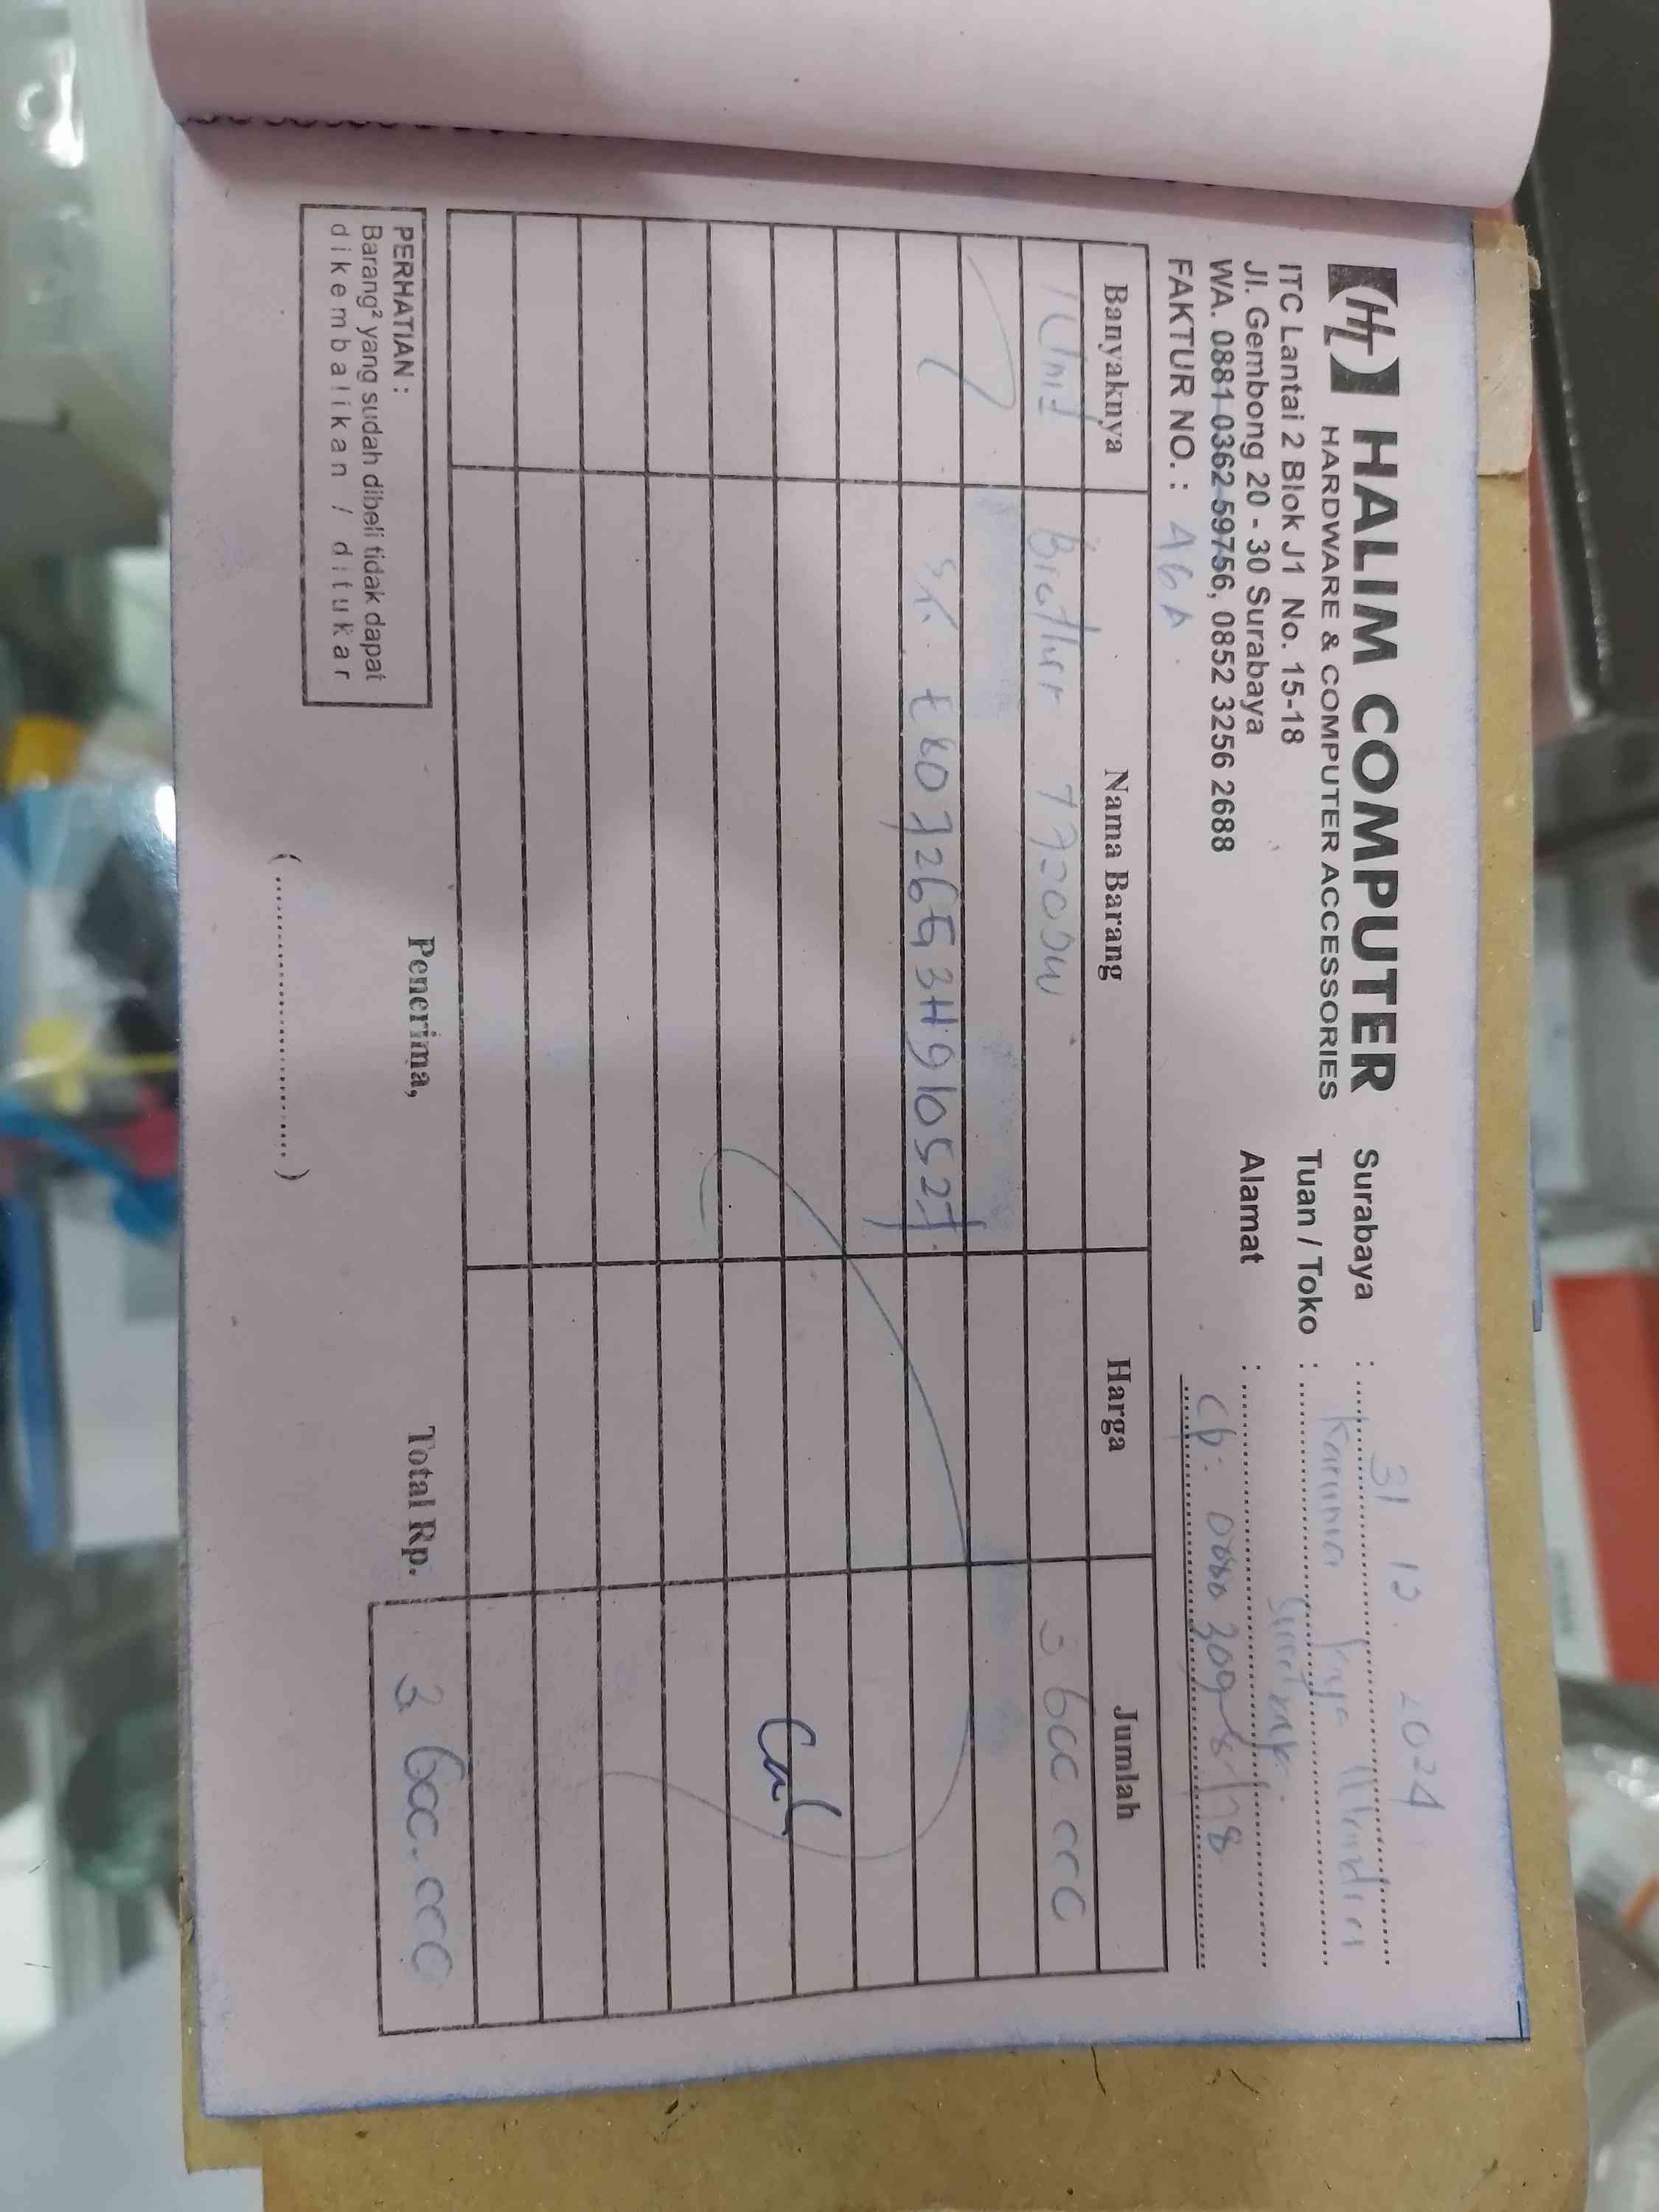 HL HALIM COMPUTER
HARDWARE & COMPUTER ACCESSORIES
ITC Lantai 2 Blok J1 No. 15-18
Jl. Gembong 20 - 30 Surabaya
WA. 0881 0362 59756, 0852 3256 2688
FAKTUR NO. : 46A
Surabaya : 31 12. 2024
Tuan / Toko : Karunia Jaya Mandiri
Alamat :
Banyaknya Nama Barang Harga Jumlah
1 Unit Brother T720DW 3 600 000
Cash
PERHATIAN :
Barang² yang sudah dibeli tidak dapat
dikembalikan / ditukar
Penerima,
(....................)
Total Rp. 3 600.000